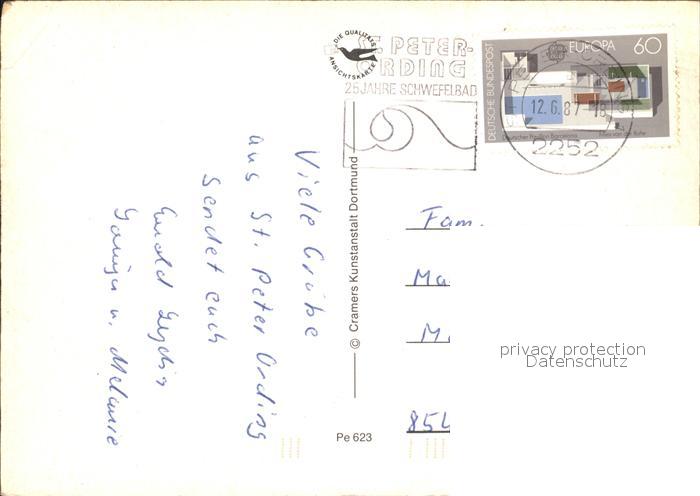 DIE QUALITÄTS
ANSICHTSKARTE
ST. PETER-
ORDING
25 JAHRE SCHWEFELBAD
DEUTSCHE BUNDESPOST
EUROPA 60
Deutscher Pavillon Barcelona
Mies van der Rohe
12.6.87
2252
Viele Grüße
aus St. Peter Ording
sendet euch
Ewald
u. Melanie
© Cramers Kunstanstalt Dortmund
Pe 623
Fam.
Ma
M
854
privacy protection
Datenschutz